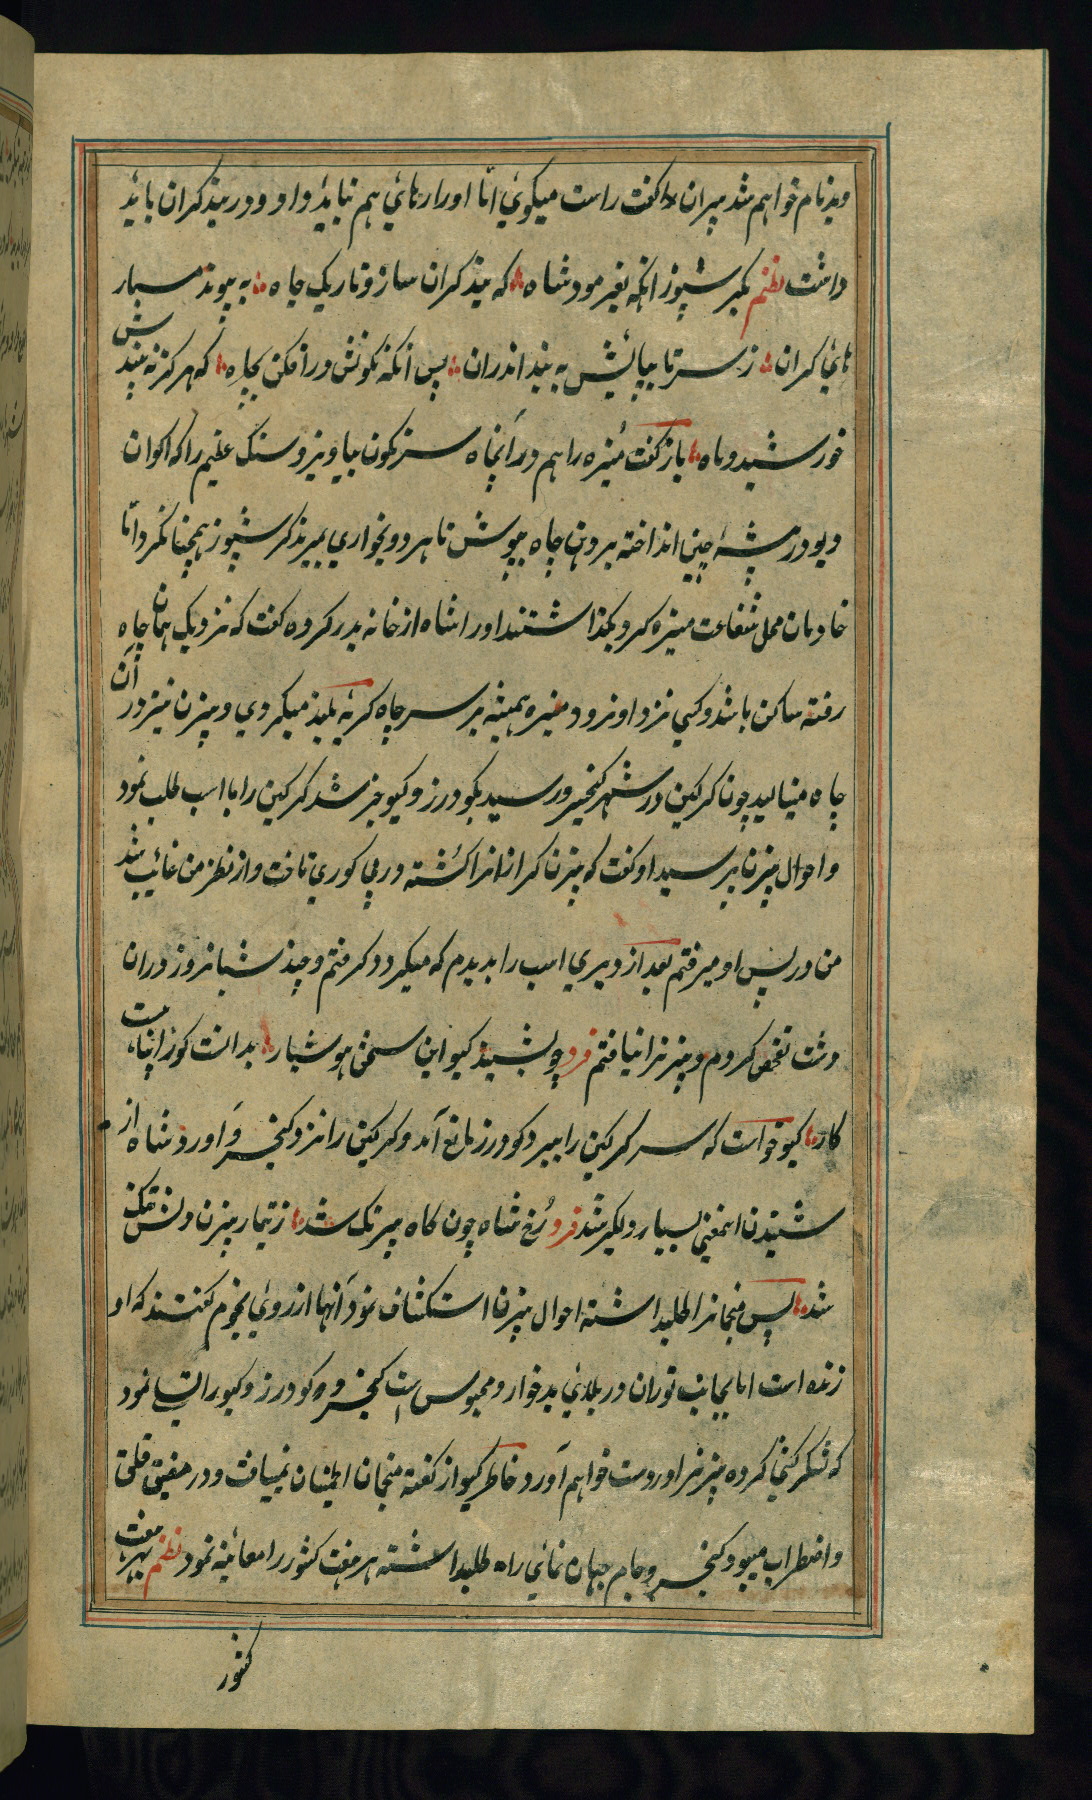 وبدنام خواهم شد پیران ویسه گفت راست میگوئي امّا اورا رهائي هم نباید داد و در بند کران باید
داشت نظم بکرشیوز انکه بفرمود شاه که بند کران ساز و تاریک چاه به پیوند مسمار
هائ کران ز سر تا بپایش به بند اندران پس انکه نکونش در افکن بچاه که هرکز نه بیندش
خورشید و ماه باز گفت منیژه را هم در آنچاه سرنکون بیاویز و سنک عظیم را که اکوان
دیو در بیشهٔ چین انداخته بر دهن چاه بپوش تا هر دو بخواري بمیرند کرشیوز همچنان کرد امّا
خادمان محل شفاعت منیژه کرد بکذاشتند اورا شاه از خانه بدر کرده گفت که نزدیک همان چاه
رفته ساکن باشد و کسي نزد او نرود منیژه همیشه بر سر چاه کریهٔ بلند میکردي و بیژن نیز در آن
چاه مینالید چون کرکین در شهر کیخسرو رسید بگودرز و گیو خبر شد کرکین را با اسب طلب نمود
و احوال بیژن پرسید او گفت که بیژن کرازانرا کشته در پي کوري تاخت و از نظر من غائب شد
من در پس او میرفتم بعد از دیري اسب را بدیدم که میکردد کرفتم و چند شبانروز دران
دشت تفحص کردم و بیژنرا نیافتم فرد چو بشنید کیو این سخن هوشیار بدانست کو را تباهست
کار کیو خواست که سر کرکین را ببرد کودرز مانع آمد و کرکین را نزد کیخسرو آورد شاه از
شنیدن اینمعني بسیار دلکیر شد فرد رُخ شاه چون کاه بیرنک شد ز تیمار بیژن دلش تنک
شد پس منجمانرا طلبداشته احوال بیژن استکشاف نمود آنها از روئي نجوم گفتند که او
زنده است اما بجانب توران در بلائي بد خوار و محبوس است کیخسرو کودرز و کیو را تسلي نمود
که لشکر کشي کرده بیژنرا بدست خواهم آورد خاطر کیو از کفته منجمان اطمینان نمییافت و در همین قلق
و اضطراب میبود کیخسرو جام جهان نمائي را طلبداشته هر هفت کشور را معاینه نمود نظم بهر هفت
کشور